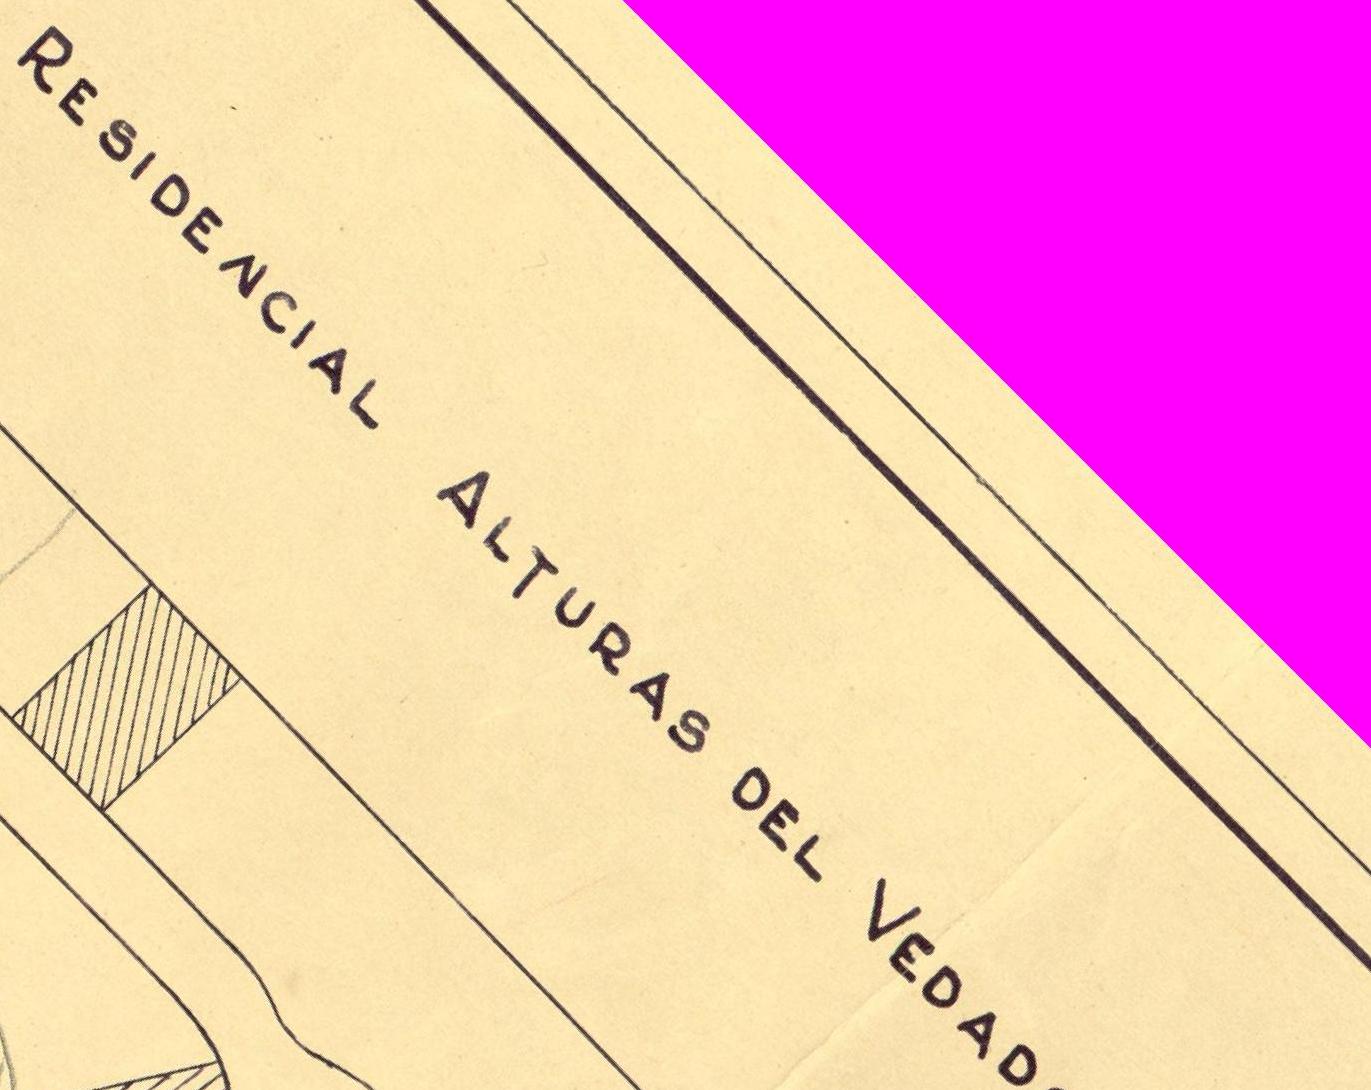 RESIDENCIAL ALTURAS DEL VEDADO